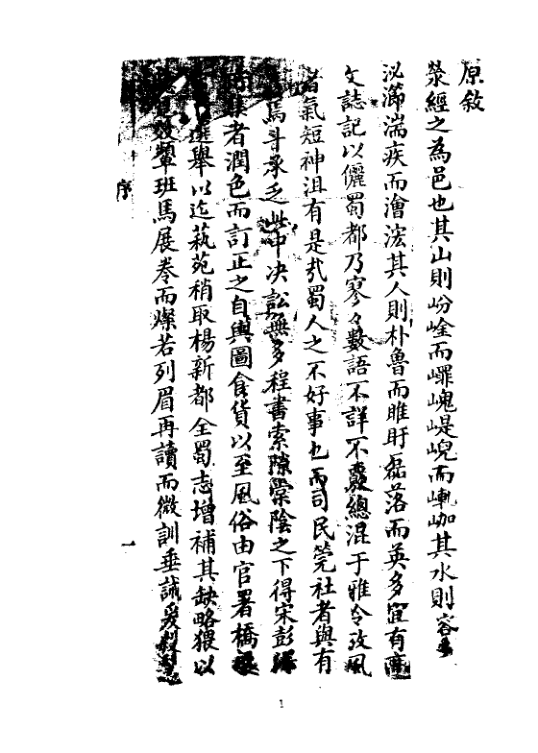 原敘
滎經之為邑也其山則岎崯而嶵嵬崼崐而㠥峫其水則容
泌㵧湍疾而澮浤其人則朴魯而睢盱磊落而英多宜有
文誌記以儷蜀都乃寥々數語不詳不覈總混于雅令攷風
者氣短神沮有是哉蜀人之不好事也而司民莞社者與有
馬斗承乏此中决訟無多程書索隙棠陰之下得宋彭
者潤色而訂正之自輿圖食貨以至風俗由官署橋
選舉以迄蓺苑稍取楊新都全蜀志增補其缺略猥以
效顰班馬展卷而燦若列眉再讀而微訓垂誡爰
序
一
1